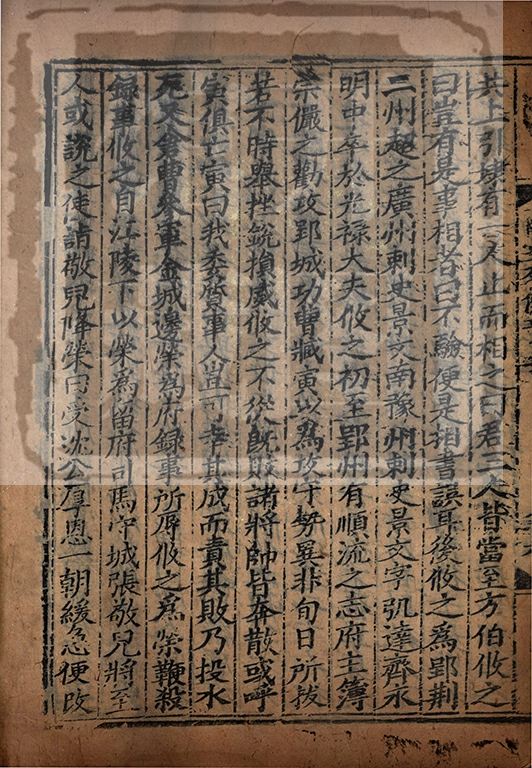 共上引埭有一人止而相之曰君三人皆當至方伯攸之
曰豈有是事相者曰不驗便是相書誤耳後攸之爲郢荆
二州超之廣州刺史景文南豫州刺史景文字弘達齊永
明中卒於光禄大夫攸之初至郢州有順流之志府主簿
宗儼之勸攻郢城功曹臧寅以爲攻守勢異非旬日所拔
若不時舉挫銳損威攸之不從既敗諸將帥皆奔散或呼
寅俱亡寅曰我委質事人豈可幸其成而責其敗乃投水
死又倉曹參軍金城邊榮爲府録事所辱攸之爲榮鞭殺
録事攸之自江陵下以榮爲留府司馬守城張敬兒將至
人或說之使詣敬兒降榮曰受沈公厚恩一朝緩急便改